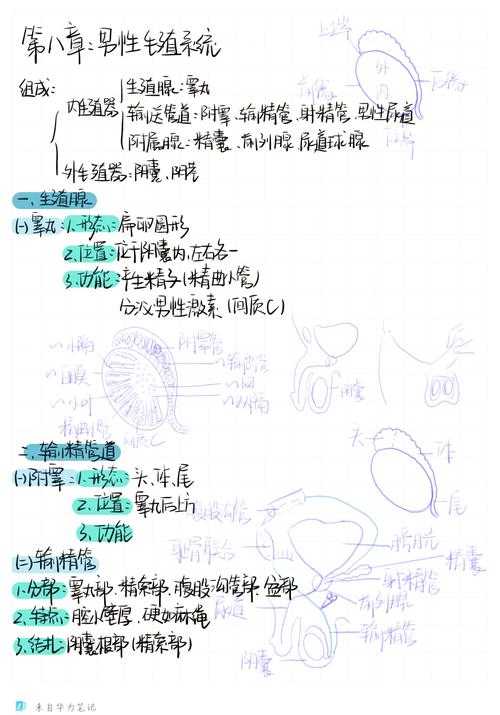 第八章:男性生殖系统
上端
外
内
前缘
后缘
下端
组成:
内生殖器
生殖腺:睾丸
输送管道:附睾、输精管、射精管、男性尿道
附属腺:精囊、前列腺、尿道球腺
外生殖器:阴囊、阴茎
一、生殖腺
(一)睾丸:1.形态:扁卵圆形
2.位置:位于阴囊内,左右各一
3.功能:产生精子(精曲小管)
分泌男性激素(间质C)
~小隔
附睾管
~白膜
~输出管
~网
~小叶
~纵隔
精曲小管
间质C
阴囊
二、输精管道
(一)附睾:1.形态:头、体、尾
2.位置:睾丸后上方
3.功能
头
体
尾
(二)输精管
1.分部:睾丸部、精索部、腹股沟管部、盆部
2.特点:腔小壁厚,硬如麻绳
3.结扎:阴囊根部(精索部)
腹股沟管
耻骨联合
膀胱
精囊
射精管
前列腺
尿道
输精管
阴囊
来自华为笔记